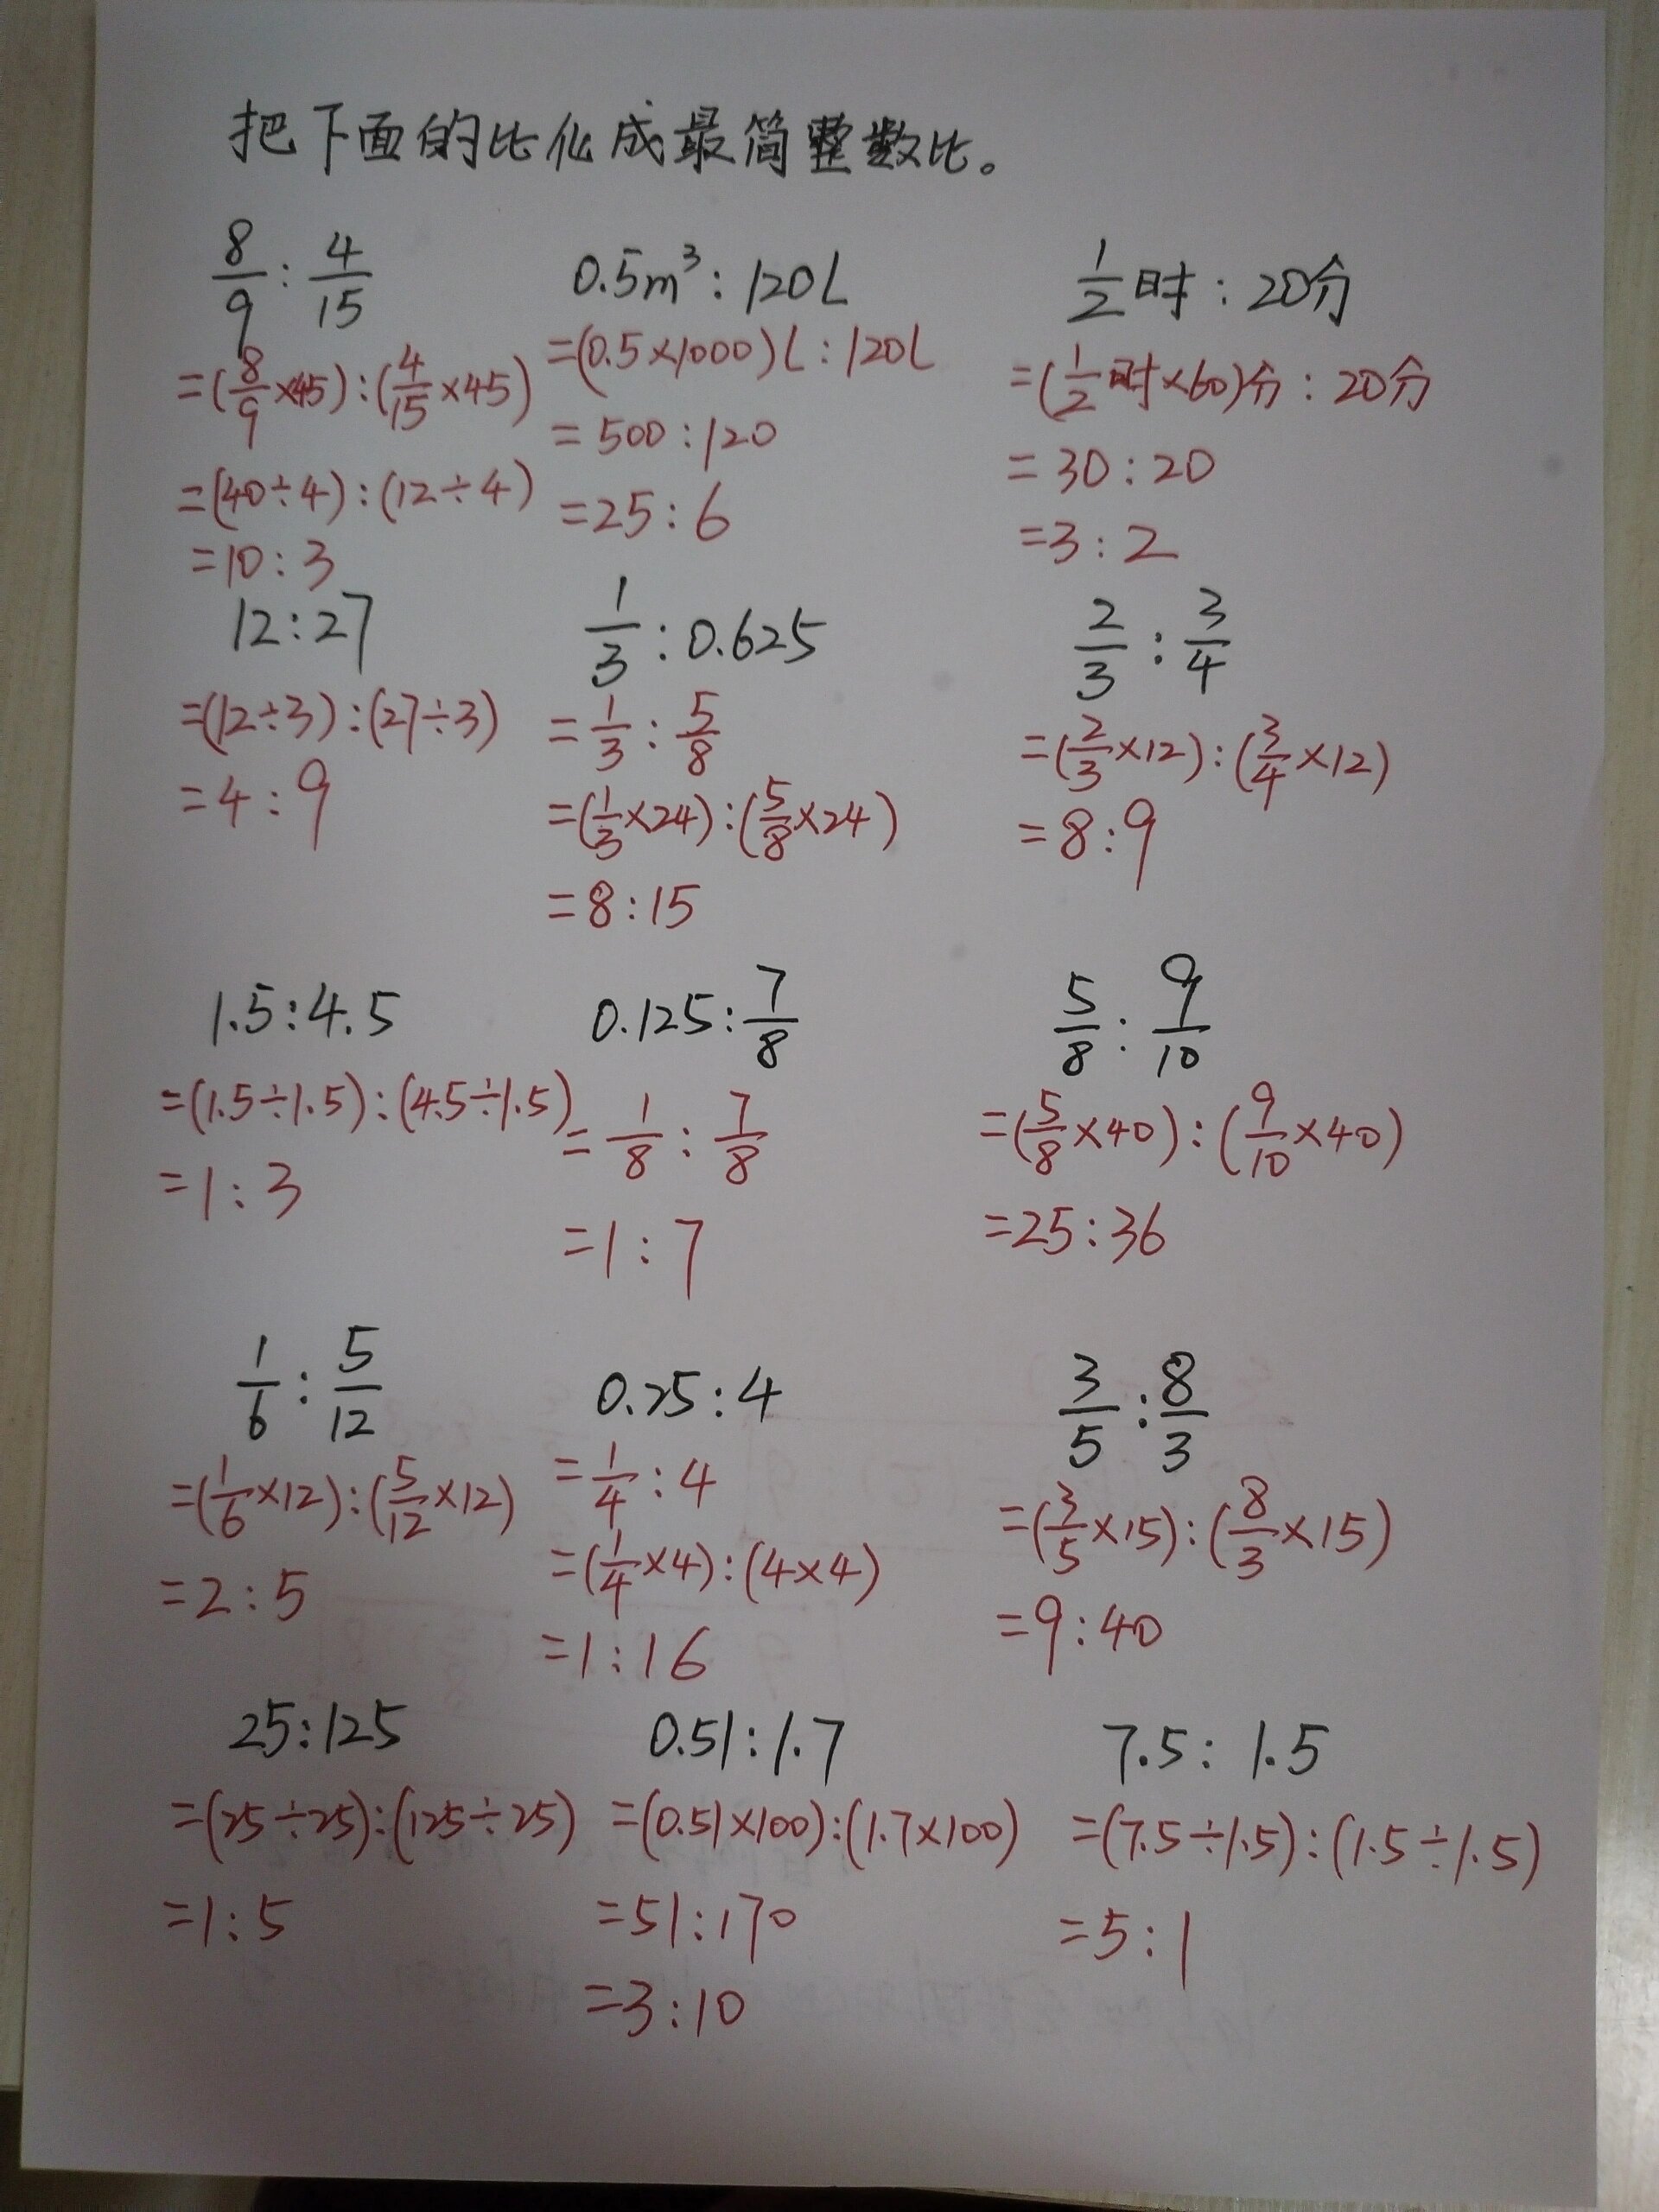 把下面的比化成最简整数比。
8/9 : 4/15
=(8/9×45):(4/15×45)
=(40÷4):(12÷4)
=10:3
0.5m³:120L
=(0.5×1000)L:120L
=500:120
=25:6
1/2时:20分
=(1/2时×60)分:20分
=30:20
=3:2
12:27
=(12÷3):(27÷3)
=4:9
1/3:0.625
=1/3:5/8
=(1/3×24):(5/8×24)
=8:15
2/3:3/4
=(2/3×12):(3/4×12)
=8:9
1.5:4.5
=(1.5÷1.5):(4.5÷1.5)
=1:3
0.125:7/8
=1/8:7/8
=1:7
5/8:9/10
=(5/8×40):(9/10×40)
=25:36
1/6:5/12
=(1/6×12):(5/12×12)
=2:5
0.25:4
=1/4:4
=(1/4×4):(4×4)
=1:16
3/5:8/3
=(3/5×15):(8/3×15)
=9:40
25:125
=(25÷25):(125÷25)
=1:5
0.51:1.7
=(0.51×100):(1.7×100)
=51:170
=3:10
7.5:1.5
=(7.5÷1.5):(1.5÷1.5)
=5:1